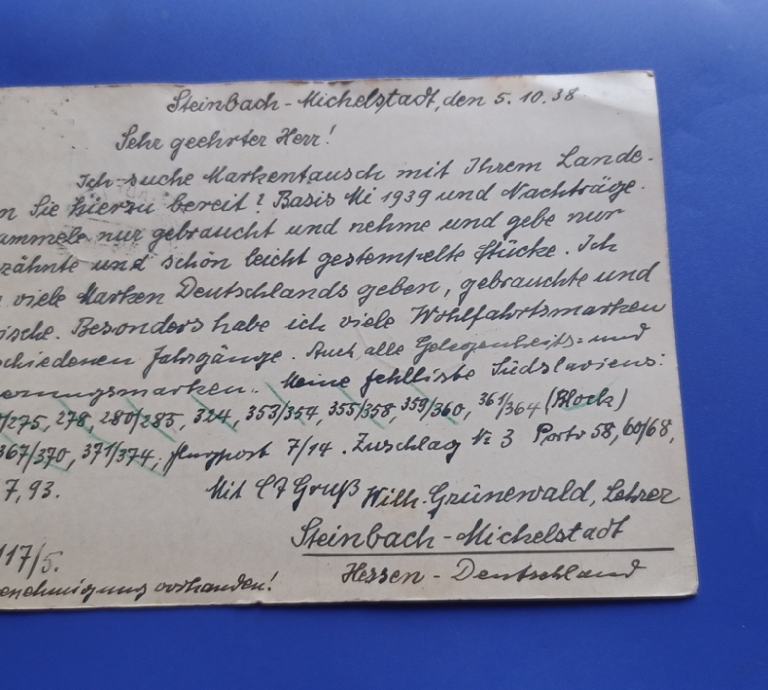 Steinbach-Michelstadt, den 5.10.38
Sehr geehrter Herr!
Ich suche Markentausch mit Ihrem Lande.
n Sie hierzu bereit? Basis Mi 1939 und Nachträge.
ammele nur gebraucht und nehme und gebe nur
zähnte und schön leicht gestempelte Stücke. Ich
viele Marken Deutschlands geben, gebrauchte und
ische. Besonders habe ich viele Wohlfahrtsmarken
schiedenen Jahrgänge. Auch alle Gelegenheits- und
erungsmarken. Meine Fehlliste Südslaviens:
/275, 278, 280/285, 324, 353/354, 355/358, 359/360, 361/364 (Block)
367/370, 371/374, Flugpost 7/14. Zuschlag Nr 3 Porto 58, 60/68,
7, 93. Mit Gruß Wilh. Grünewald, Lehrer
Steinbach-Michelstadt
117/5.
enehmigung vorhanden! Hessen - Deutschland